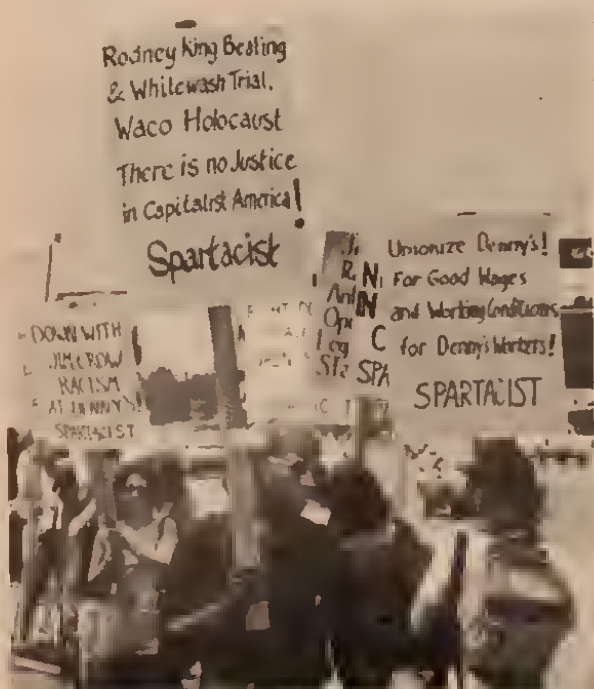 Rodney King Beating
& Whitewash Trial.
Waco Holocaust
There is no Justice
in Capitalist America!
Spartacist
DOWN WITH
JIM CROW
RACISM
AT DENNY'S!
SPARTACIST
Unionize Denny's!
For Good Wages
and Working Conditions
for Denny's Workers!
SPARTACIST